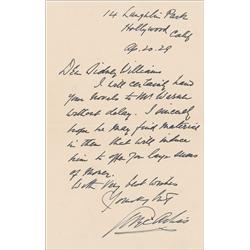 14 Laughlin Park
Hollywood
Calif
Ap. 20. 29
Dear Sidney Williams
I will certainly hand
your novels to Mr
without delay. I sincerely
hope he may find material
in them that will induce
him to offer you large sums
of money.
With very best wishes
Yours